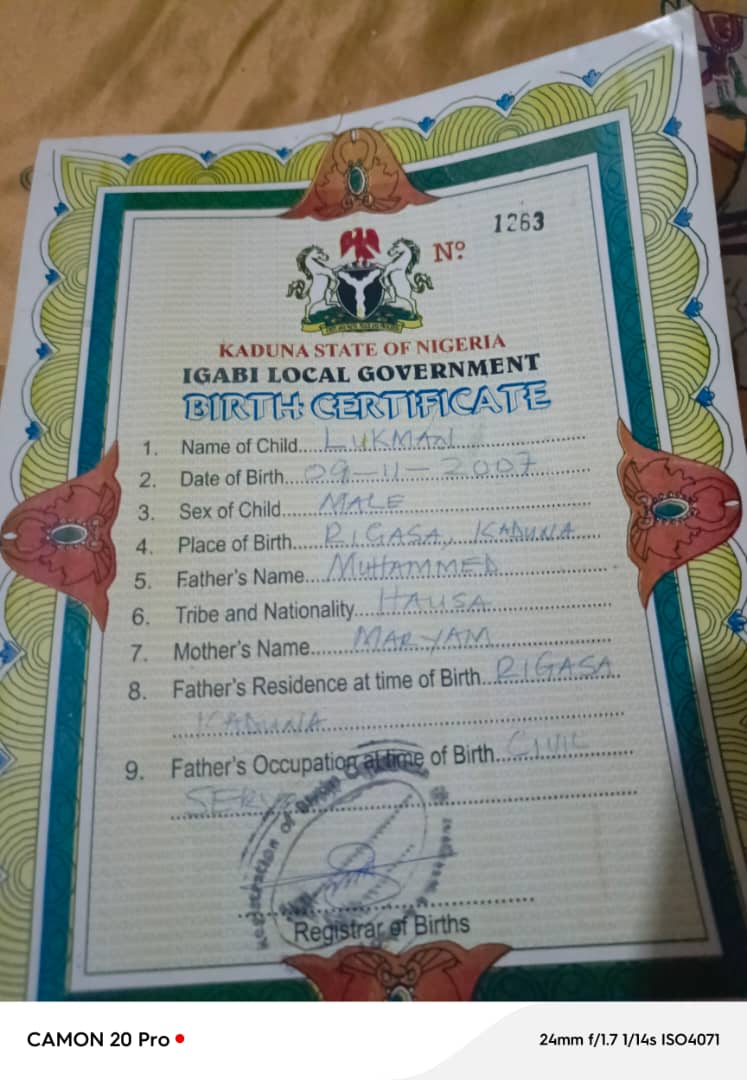 Nº 1263
KADUNA STATE OF NIGERIA
IGABI LOCAL GOVERNMENT
BIRTH CERTIFICATE
1. Name of Child...LUKMAN
2. Date of Birth...09-11-2007
3. Sex of Child...MALE
4. Place of Birth...RIGASA, KADUNA
5. Father's Name...MUHAMMED
6. Tribe and Nationality...HAUSA
7. Mother's Name...MARYAM
8. Father's Residence at time of Birth...RIGASA
KADUNA
9. Father's Occupation at time of Birth...CIVIL
Registration of Birth
Registrar of Births
CAMON 20 Pro
24mm f/1.7 1/14s ISO4071